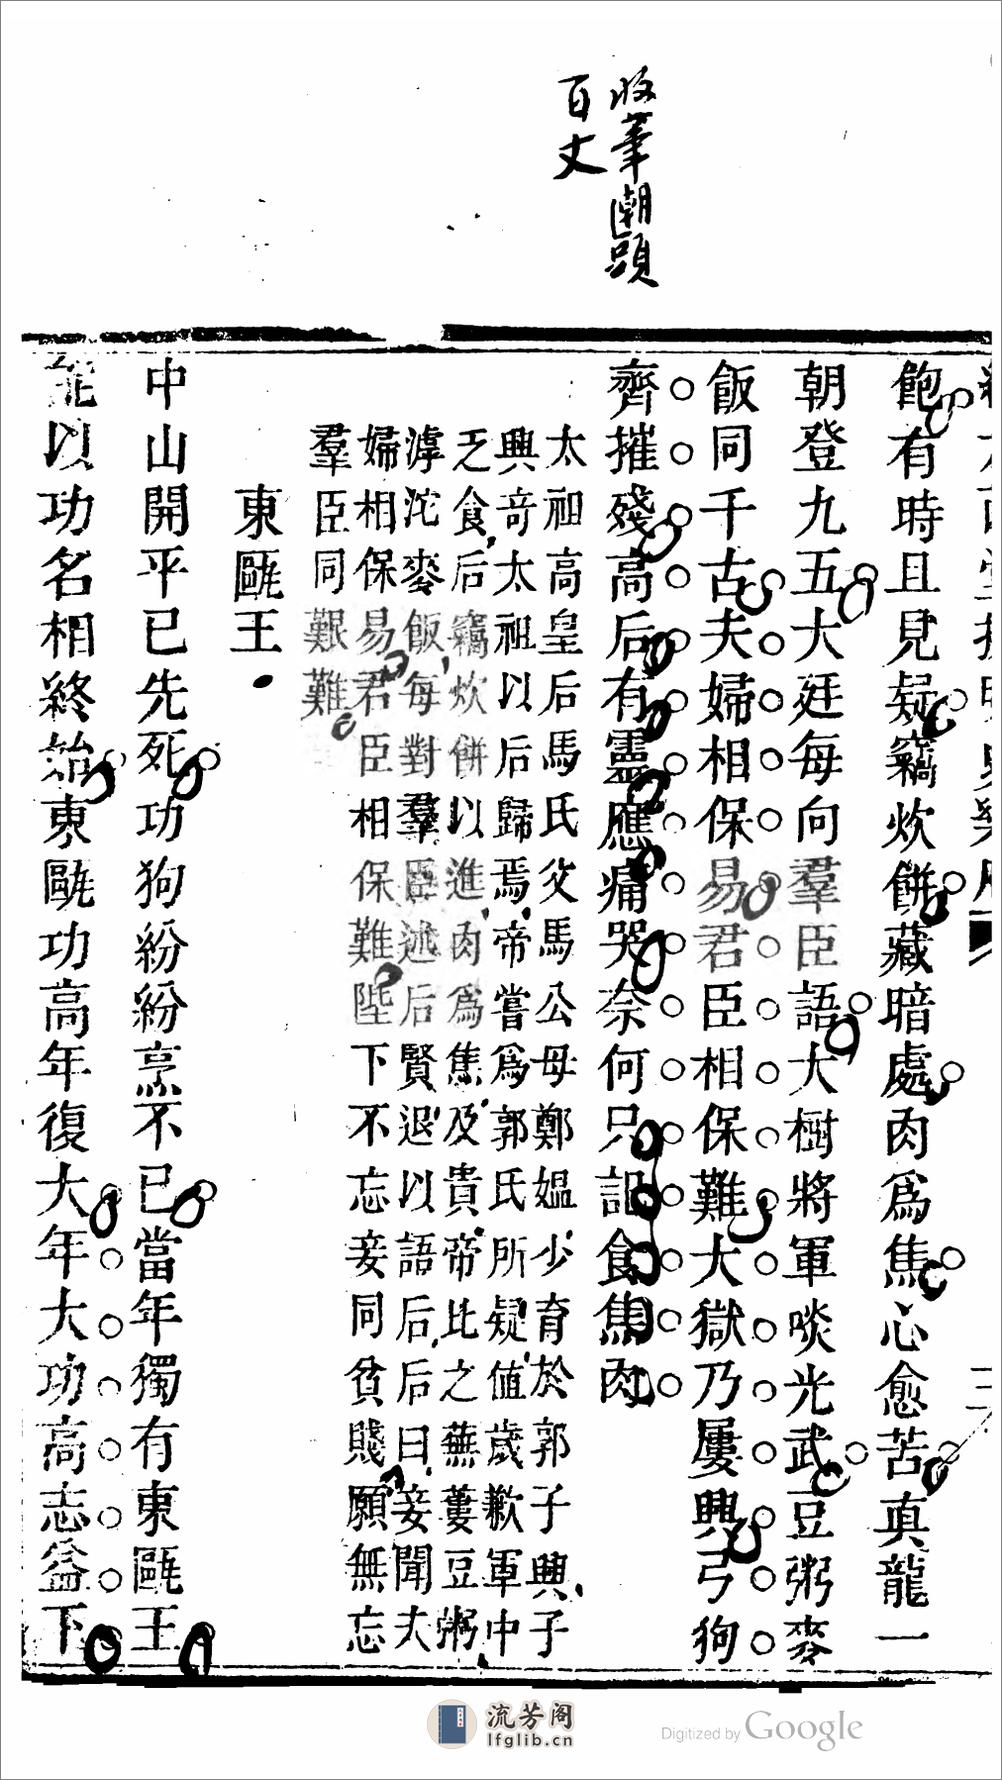 收筆潮頭
百丈
飽有時且見疑竊炊餅藏暗處肉爲焦心愈苦真龍一
朝登九五大廷每向羣臣語大樹將軍啖光武豆粥麥
飯同千古夫婦相保易君臣相保難大獄乃屢興弓狗
齊摧殘高后有靈應痛哭奈何只詔食焦肉
太祖高皇后馬氏父馬公母鄭媼少育於郭子興子
興奇太祖以后歸焉帝嘗爲郭氏所疑值歲歉軍中
乏食后竊炊餅以進肉爲焦及貴帝比之蕪蔞豆粥
滹沱麥飯每對羣臣述后賢退以語后后曰妾聞夫
婦相保易君臣相保難陛下不忘妾同貧賤願無忘
羣臣同艱難
東甌王
中山開平已先死功狗紛紛烹不已當年獨有東甌王
能以功名相終始東甌功高年復大年大功高志益下
流芳阁
lfglib.cn
Digitized by Google